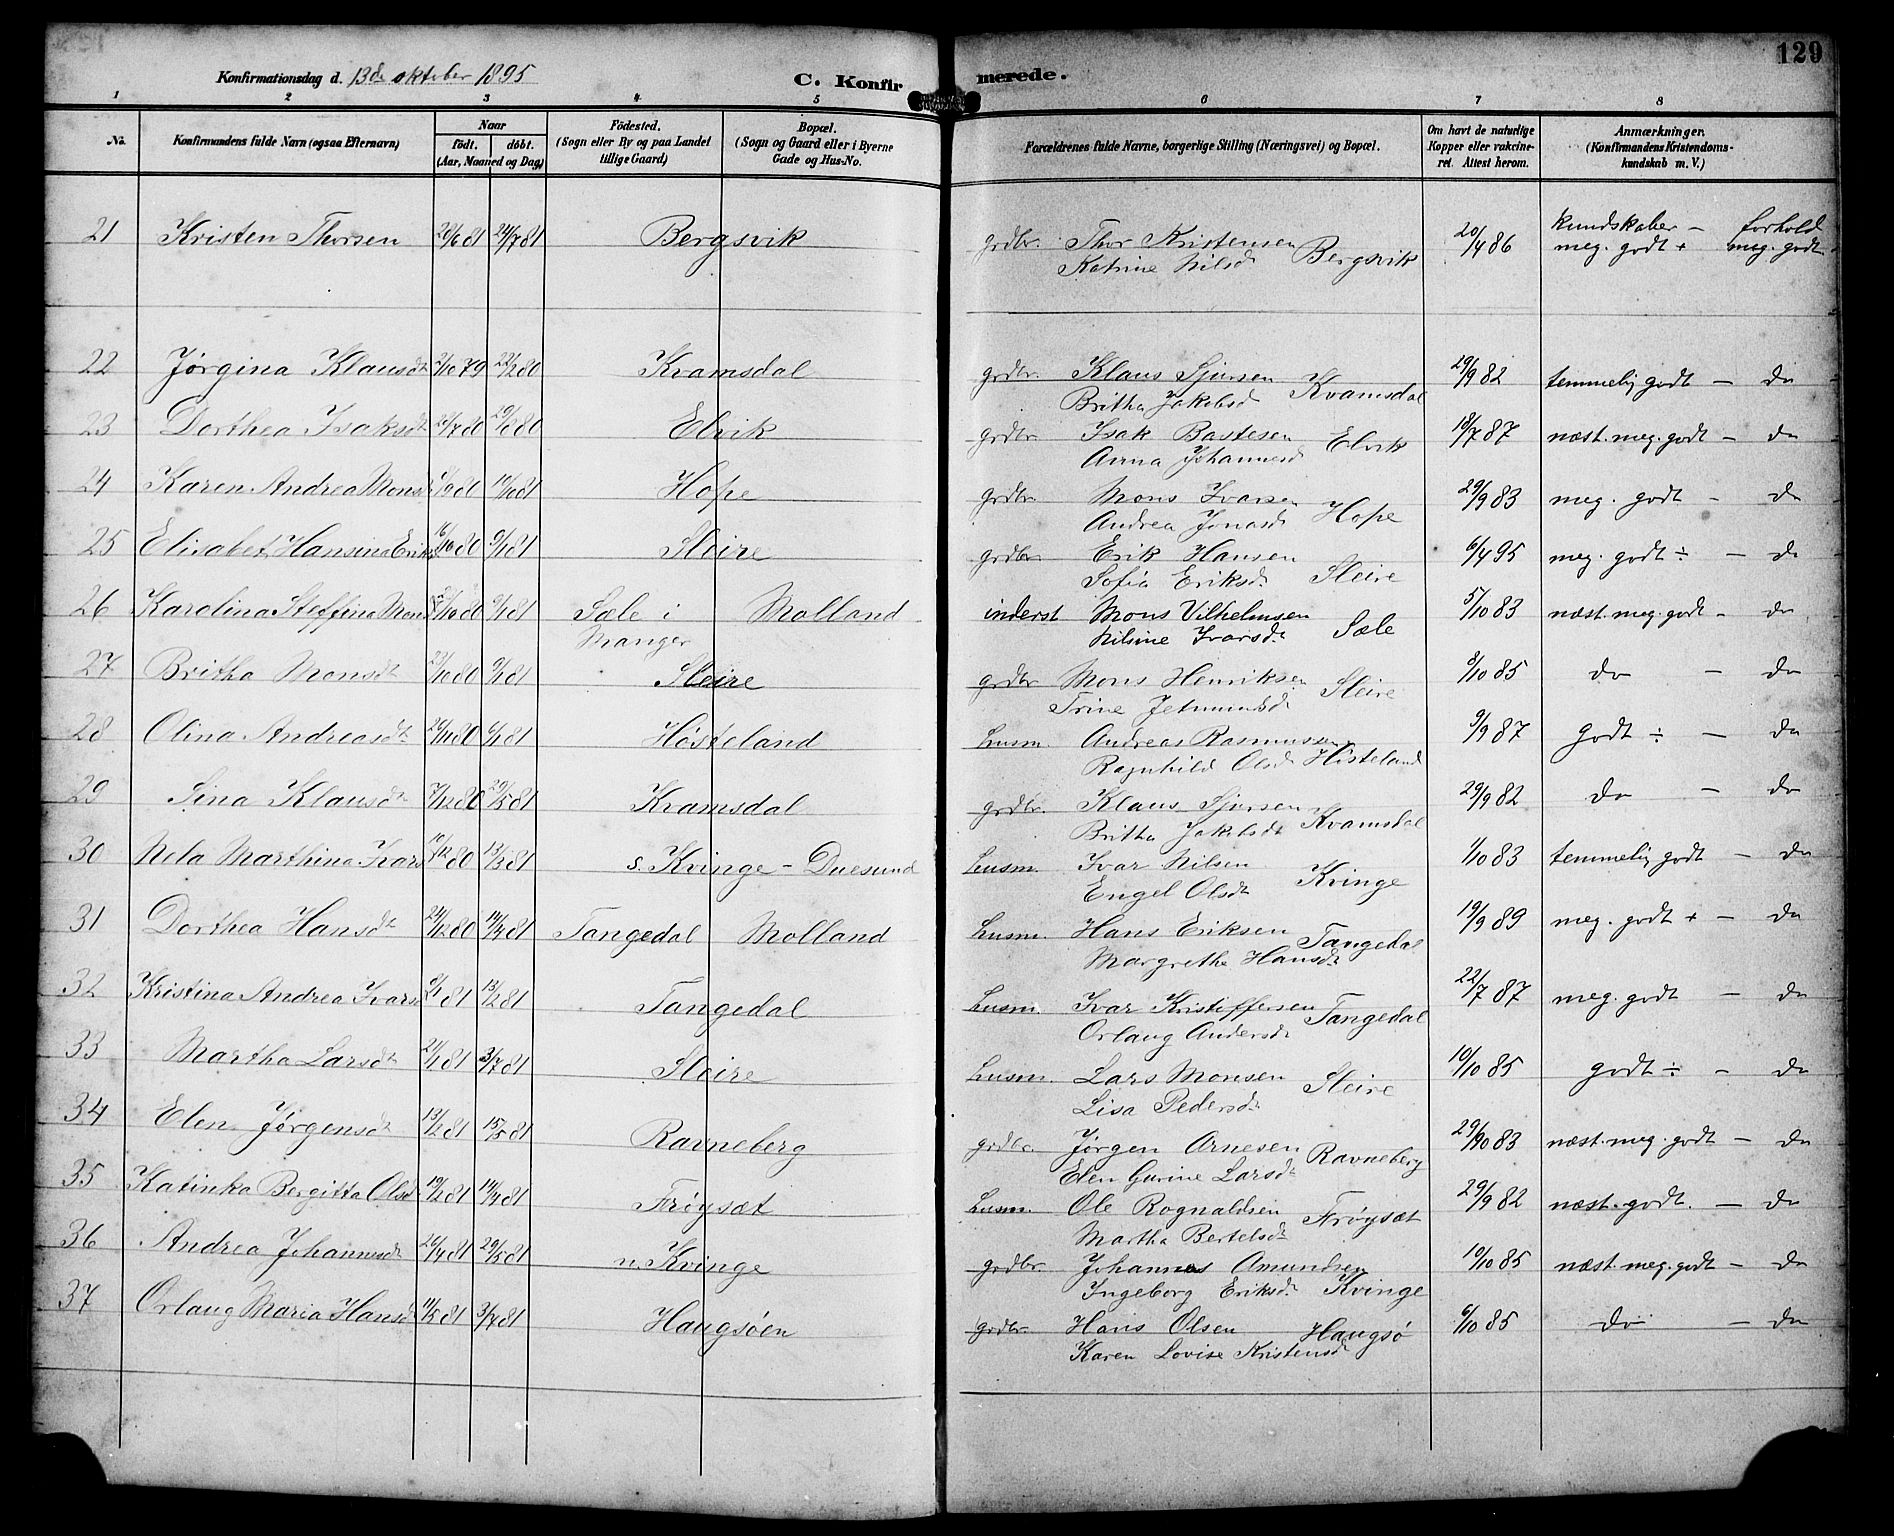 129
Konfirmationsdag d. 13de oktober 1895
C. Konfirmerede.
1 2 3 4 5 6 7 8
No. Konfirmandens fulde Navn (ogsaa Efternavn) Naar født. døbt. (Aar, Maaned og Dag) Födested. (Sogn eller By og paa Landet tillige Gaard) Bopæl. (Sogn og Gaard eller i Byerne Gade og Hus-No. Forældrenes fulde Navne, borgerlige Stilling (Næringsvei) og Bopæl. Om havt de naturlige Kopper eller vakcineret. Attest herom. Anmærkninger. (Konfirmandens Kristendomskundskab m. V.)
kundskaber – forhold
21 Kristen Thorsen 20/6 81 24/7 81 Bergsvik grdbr. Thor Kristensen Bergsvik 20/4 86 meg. godt + meg. godt
Katrine Nilsd
22 Jørgina Klausdt 2/10 79 22/2 80 Kvamsdal grdbr. Klaus Sjursen Kvamsdal 29/9 82 temmelig godt – do
Britha Jakobsd
23 Dorthea Isaksdt /7 80 29/8 80 Elvik grdbr. Isak Bastesen Elvik 18/7 87 næst. meg. godt – do
Anna Johannesd
24 Karen Andrea Monsd /9 80 10/ 81 Hope grdbr. Mons Ivarsen Hope 29/9 83 meg. godt – do
Andrea Jonasd
25 Elisabet Hansina Eriks 16/10 80 9/1 81 Sleire grdbr. Erik Hansen Sleire 6/4 95 meg. godt ÷ – do
Sofia Eriksd.
26 Karolina Steffina Mons /10 80 9/1 81 Sæle i Molland inderst Mons Vilhelmsen Sæle 5/10 83 næst. meg. godt – do
Manger Nilsine Ivarsdt
27 Britha Monsdt 23/10 80 9/1 81 Sleire grdbr Mons Henriksen Sleire 8/10 85 do – do
Trine Jetmundsd
28 Olina Andreasdt 20/11 80 6/1 81 Høsteland husm. Andreas Rasmussen Høsteland 9/9 87 godt ÷ – do
Ragnhild Olsd
29 Sina Klausdt 7/12 80 29/5 81 Kvamsdal grdbr. Klaus Sjursen Kvamsdal 29/9 82 do – do
Britha Jakobsdt
30 Nela Marthina Ivars 10/12 80 13/3 81 s. Kvinge – Duesund husm. Ivar Nilsen Kvinge 1/10 83 temmelig godt – do
Engel Olsdt
31 Dorthea Hansdt 24/12 80 14/4 81 Tangedal Molland husm. Hans Eriksen Tangedal 19/9 89 meg. godt + – do
Margrethe Hansdt
32 Kristina Andrea Ivars 8/1 81 13/2 81 Tangedal husm. Ivar Kristoffersen Tangedal 22/7 87 meg. godt – do
Orlaug Andersdt
33 Martha Larsdt 21/1 81 3/7 81 Sleire husm. Lars Monsen Sleire 10/10 85 godt ÷ – do
Lisa Pedersdt
34 Elen Jørgensdt 13/2 81 15/5 81 Ravneberg grdbr. Jørgen Arnesen Ravneberg 29/10 83 næst. meg. godt – do
Elen Gurine Larsdt
35 Katinka Bergitta Olsd 19/2 81 14/4 81 Frøysæt husm. Ole Rognaldsen Frøysæt 29/9 82 næst. godt. – do
Martha Bertelsdt
36 Andrea Johannesdt 26/4 81 29/5 81 n. Kvinge grdbr. Johannes Amundsen 10/10 85 næst. meg. godt – do
Ingeborg Eriksdt Kvinge
37 Orlaug Maria Hansdt 11/5 81 3/7 81 Haugsøen grdbr. Hans Olsen Haugsø 6/10 85 do – do
Karen Lovise Kristensd